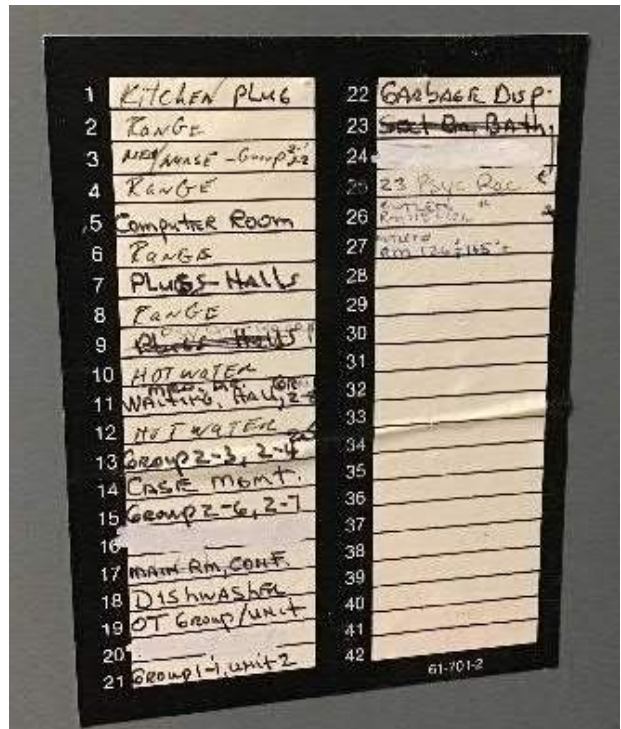 1 KITCHEN PLUG
2 RANGE
3 MED/NURSE - Group 2-1 2-2
4 RANGE
5 Computer Room
6 RANGE
7 PLUGS HALLS
8 RANGE
9 PLUGS HALLS
10 HOT WATER
11 WAITING, HALL, 2-
12 HOT WATER
13 GROUP 2-3, 2-4
14 CASE MGMT.
15 GROUP 2-6, 2-7
16
17 MAIN RM, CONF.
18 DISHWASHER
19 OT GROUP/UNIT
20
21 GROUP 1-1, UNIT 2
22 GARBAGE DISP.
23 BATH.
24
25 23 Psyc Rec
26 OUTLETS
27 OUTLETS RM 126
28
29
30
31
32
33
34
35
36
37
38
39
40
41
42
61-701-2